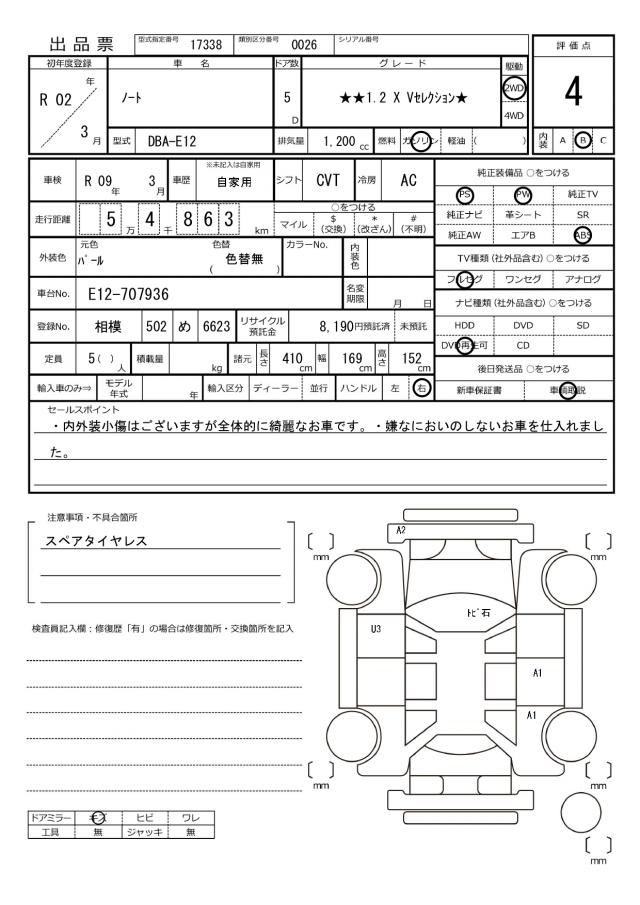 出品票
型式指定番号 17338 類別区分番号 0026 シリアル番号
初年度登録 車名 ドア数 グレード 駆動
評価点
R 02 年 3 月
ノート
5 D
★★1.2 X Vセレクション★
2WD
4WD
4
型式 DBA-E12 排気量 1,200 cc 燃料 ガソリン 軽油 ( )
内装 A B C
車検 R 09 年 3 月 車歴 ※未記入は自家用 自家用 シフト CVT 冷房 AC
走行距離 5 万 4 千 8 6 3 km
○をつける
マイル $ (交換) * (改ざん) # (不明)
外装色 元色 パール 色替 ( 色替無 ) カラーNo. 内装色
車台No. E12-707936 名変期限 月 日
登録No. 相模 502 め 6623 リサイクル預託金 8,190円預託済 未預託
定員 5 ( ) 人 積載量 kg 諸元 長さ 410 cm 幅 169 cm 高さ 152 cm
輸入車のみ⇒ モデル年式 年 輸入区分 ディーラー 並行 ハンドル 左 右
純正装備品 ○をつける
PS PW 純正TV
純正ナビ 革シート SR
純正AW エアB ABS
TV種類(社外品含む) ○をつける
フルセグ ワンセグ アナログ
ナビ種類(社外品含む) ○をつける
HDD DVD SD
DVD再生可 CD
後日発送品 ○をつける
新車保証書 車輌取説
セールスポイント
・内外装小傷はございますが全体的に綺麗なお車です。・嫌なにおいのしないお車を仕入れまし
た。
注意事項・不具合箇所
スペアタイヤレス
検査員記入欄：修復歴「有」の場合は修復箇所・交換箇所を記入
[ ] mm
A2
[ ] mm
トビ石
U3
A1
A1
[ ] mm
[ ] mm
[ ] mm
ドアミラー キズ ヒビ ワレ
工具 無 ジャッキ 無